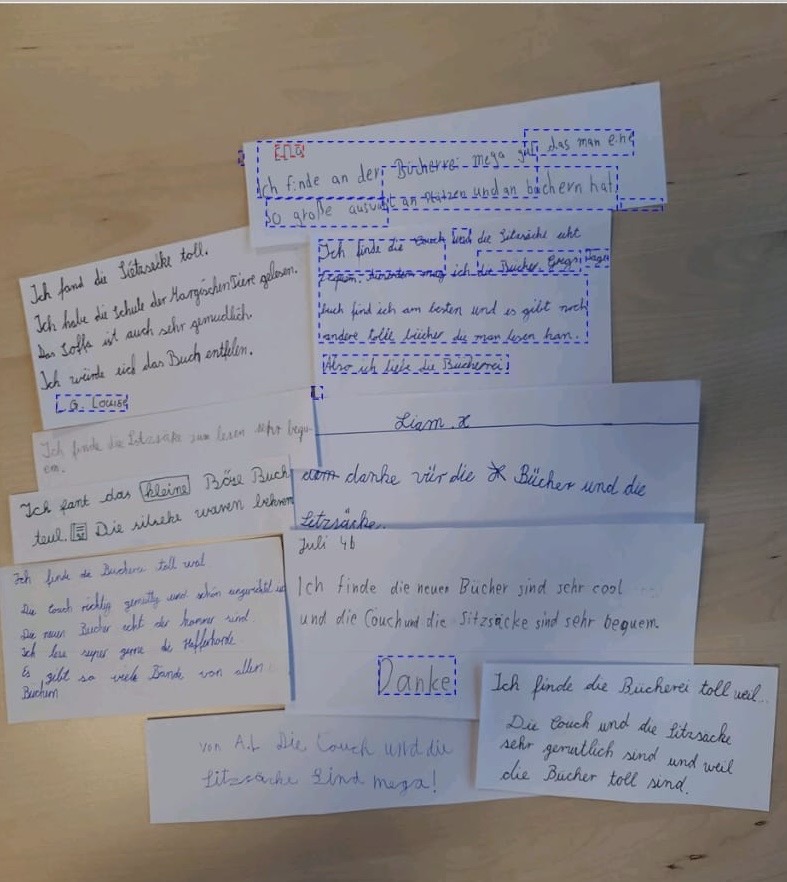 Ella
Ich finde an der Bücherrei mega gut das man eine
so große auswalt an Plätzen und an büchern hat.
Ich finde die Couch und die Sitzsäcke echt
bequem. ich die Bücher. Gregs Tage
buch find ich am besten und es gibt noch
andere tolle bücher die man lesen kan.
Also ich liebe die Bücherrei
Ich fand die Sietzsäcke toll.
Ich habe die Schule der Margischen Tiere gelesen.
Das Soffa ist auch sehr gemudlich.
Ich würde euch das Buch entfelen.
L. G. Louise
Ich finde die Sitzsäke zum lesen sehr bequ-
em.
Ich fant das kleine Böse Buch
teul. Die sitseke waren bekrem
Liam.x
dem danke vür die Bücher und die
Sitzsäcke.
Juli 4b
Ich finde die neuen Bücher sind sehr cool
und die Couch und die Sitzsäcke sind sehr bequem.
Danke
Ich finde die Bücherei toll weil
Die Couch richtig gemütlig und schön eingerichtet ist
Die neuen Bücher echt der hammer sind.
Ich lese super gerne die Haferhorde
Es gibt so viele Bände von allen
Büchern
von A.L Die Couch und die
Sitzsäcke Sind mega!
Ich finde die Bücherei toll weil...
Die Couch und die Sitzsacke
sehr gemutlich sind und weil
die Bücher toll sind.